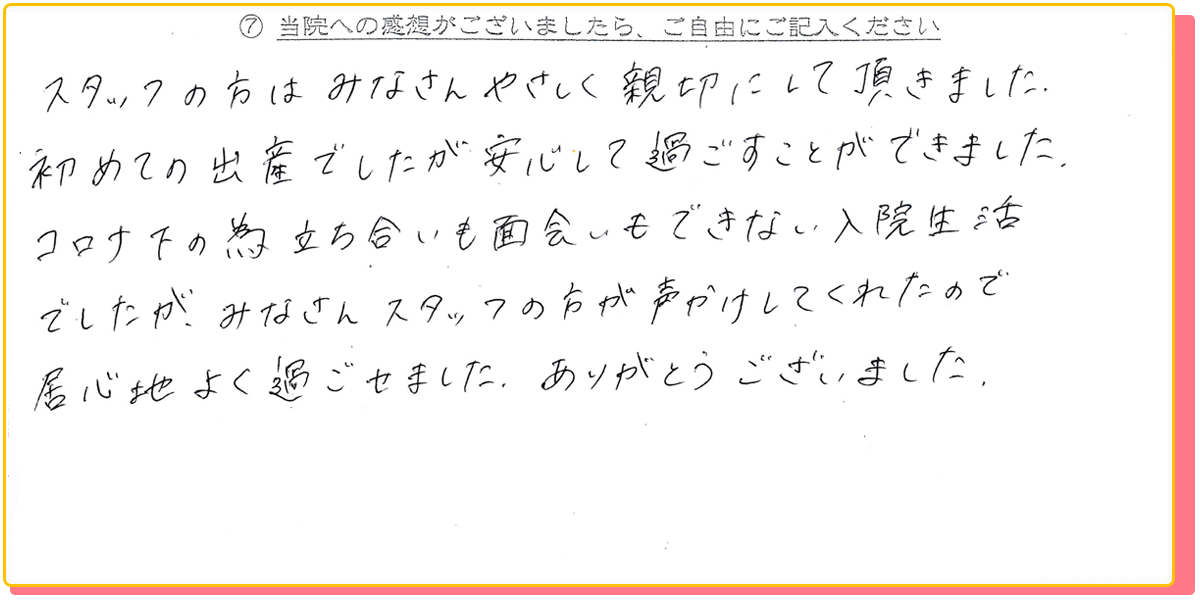 ⑦ 当院への感想がございましたら、ご自由にご記入ください
スタッフの方はみなさんやさしく親切にして頂きました.
初めての出産でしたが安心して過ごすことができました.
コロナ下の為立ち合いも面会いもできない入院生活
でしたが、みなさんスタッフの方が声かけしてくれたので
居心地よく過ごせました. ありがとうございました.